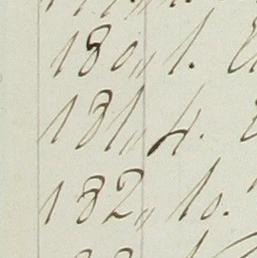 180,, 1.
181,, 4.
182,, 10.